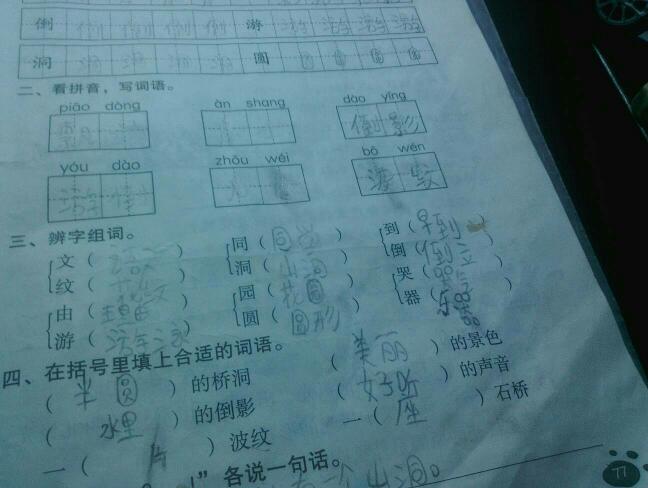 倒 倒 倒 倒 倒 游 游 游 游 游
洞 洞 洞 洞 洞 圆 圆 圆 圆 圆
二、看拼音，写词语。
piāo dòng àn shang dào yǐng
倒影
yóu dào zhōu wéi bō wén
波纹
三、辨字组词。
文（ ） 同（同学） 到（早到）
纹（波纹） 洞（山洞） 倒（倒立）
由（ ） 园（花园） 哭（ ）
游（游泳） 圆（圆形） 器（乐器）
四、在括号里填上合适的词语。
（半圆）的桥洞 （美丽）的景色
（水里）的倒影 （好听）的声音
一（片）波纹 一（座）石桥
”各说一句话。
一个山洞。
77